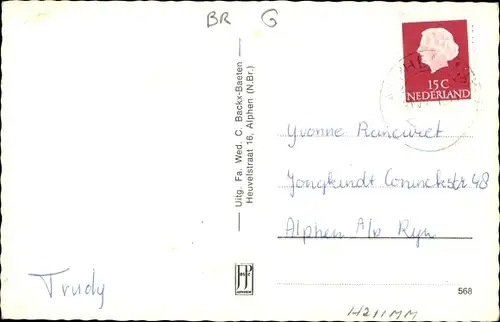 BR G
15 C
NEDERLAND
Uitg. Fa. Wed. C. Backx-Baeten
Heuvelstraat 16, Alphen (N.Br.)
Yvonne
Jongkindt Coninckstr. 48
Alphen A/D Ryn
Trudy
568
H211MM